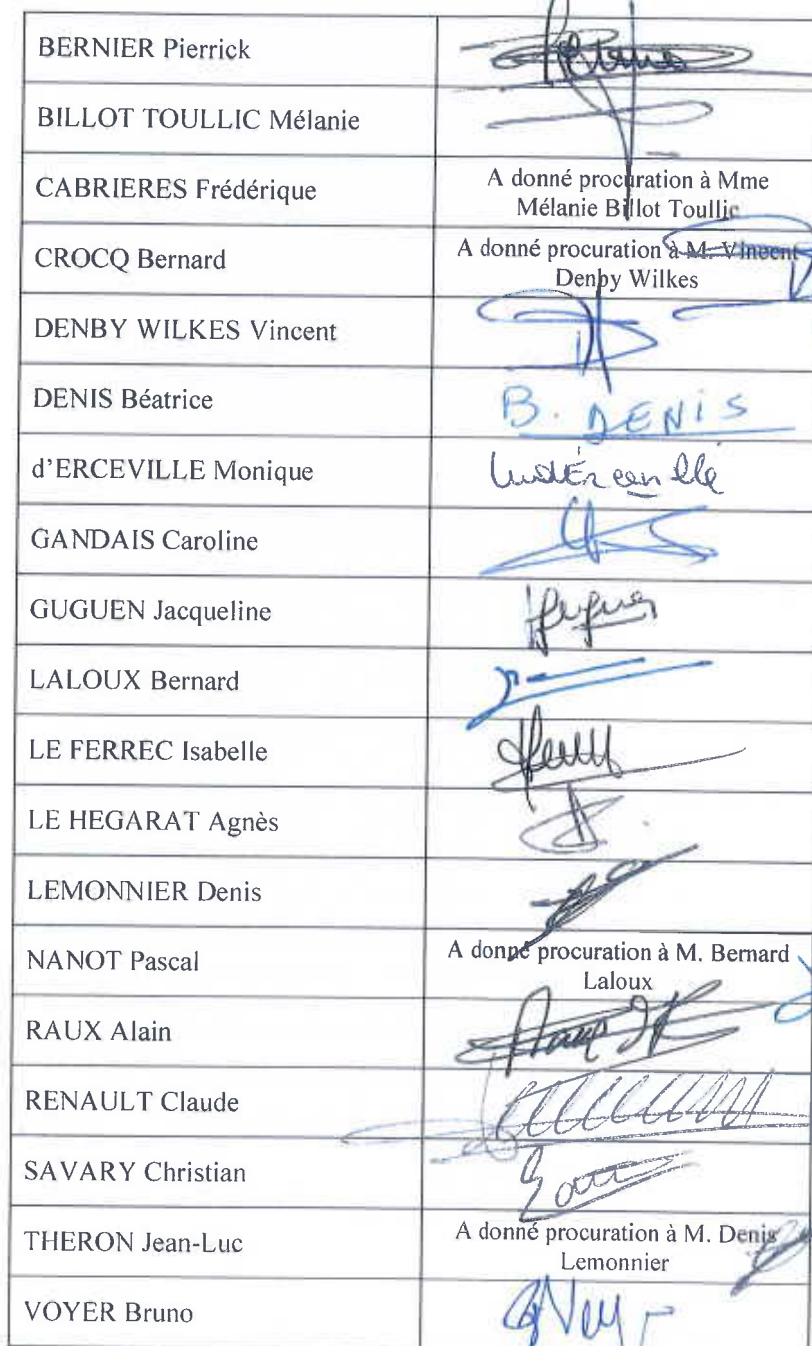 BERNIER Pierrick
BILLOT TOULLIC Mélanie
CABRIERES Frédérique
A donné procuration à Mme
Mélanie Billot Toullic
CROCQ Bernard
A donné procuration à M. Vincent
Denby Wilkes
DENBY WILKES Vincent
DENIS Béatrice
B. DENIS
d'ERCEVILLE Monique
GANDAIS Caroline
GUGUEN Jacqueline
LALOUX Bernard
LE FERREC Isabelle
LE HEGARAT Agnès
LEMONNIER Denis
NANOT Pascal
A donné procuration à M. Bernard
Laloux
RAUX Alain
RENAULT Claude
SAVARY Christian
THERON Jean-Luc
A donné procuration à M. Denis
Lemonnier
VOYER Bruno